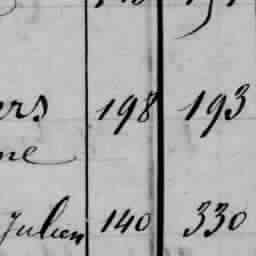 ers 198 193
ne
Julien 140 330